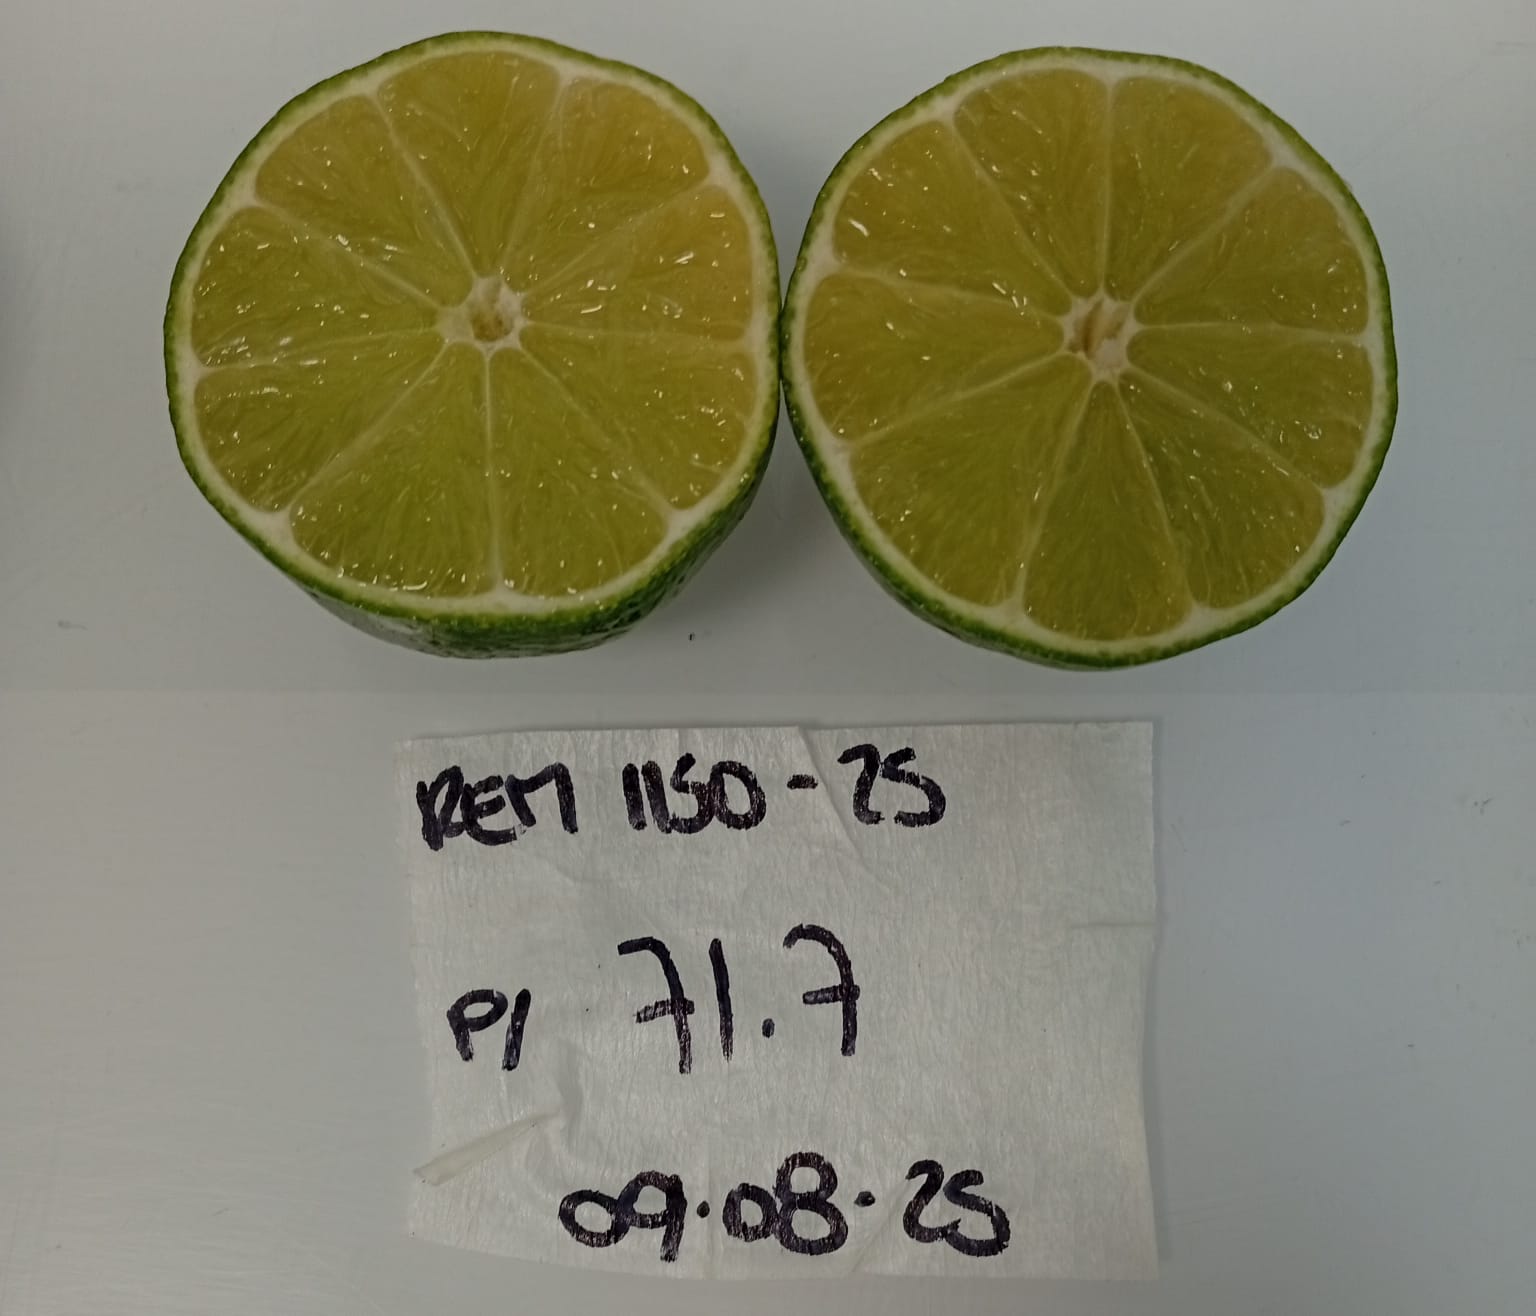 REM 1150-25
P1 71.7
09.08.25